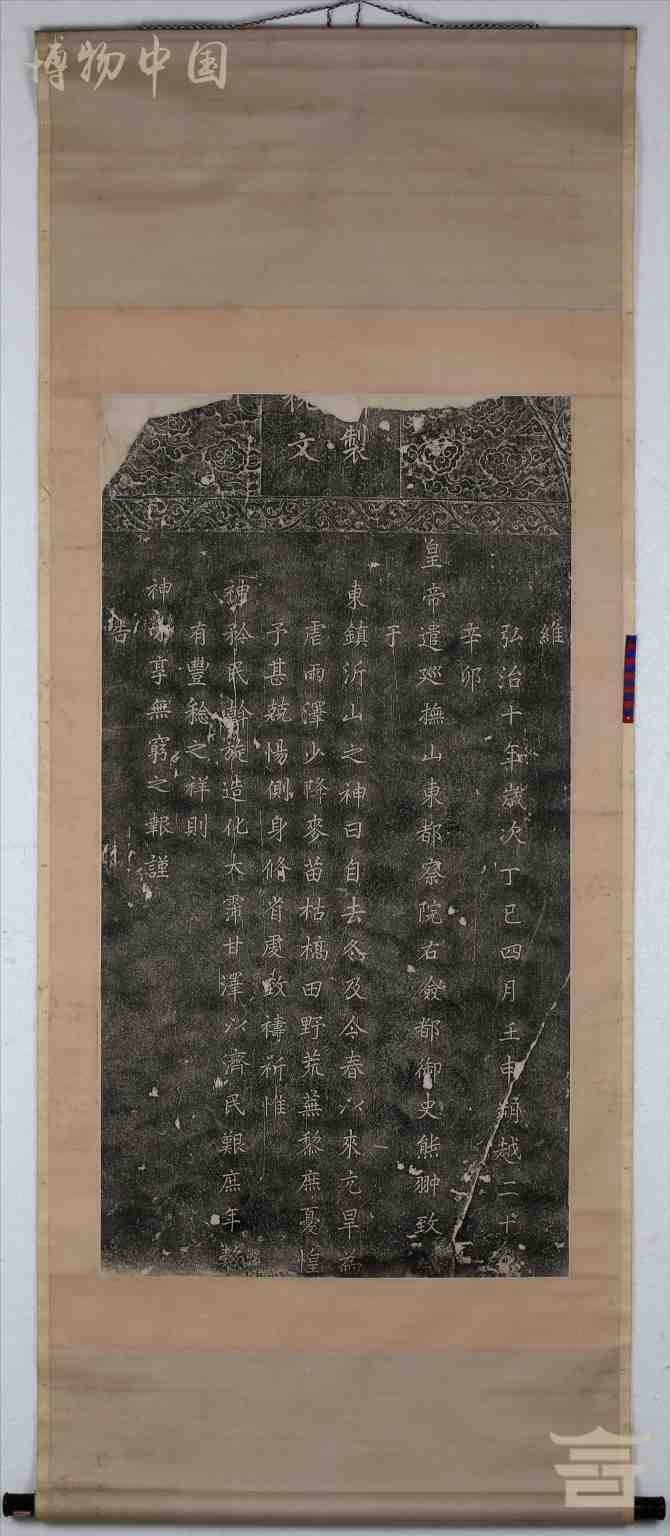 博物中国
製
文
維
弘治十年歲次丁巳四月壬申朔越二十
辛卯
皇帝遣廵撫山東都察院右僉都御史熊翀致
于
東鎮沂山之神曰自去冬及今春以來亢旱為
虐雨澤少降麥苗枯槁田野荒蕪黎庶憂惶
予甚兢惕側身脩省虔致禱祈惟
神矜民斡旋造化大霈甘澤以濟民艱庶年穀
有豐稔之祥則
神享無窮之報謹
告